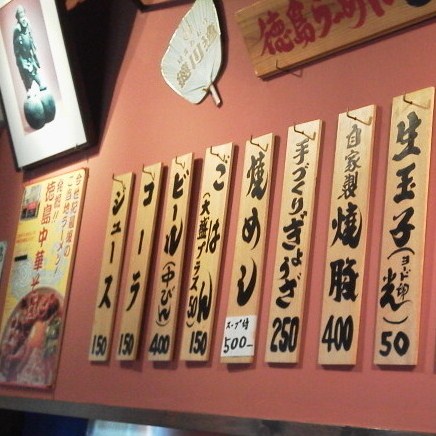 徳島らーめん
生玉子(ヨード卵光) 50
自家製 焼豚 400
手づくりぎょうざ 250
焼めし
スープ付
500-
ごはん(大盛プラス50) 150
ビール(中びん) 400
コーラ 150
ジュース 150
今世紀最後の
ご当地ラーメン
発掘!!
徳島中華そ